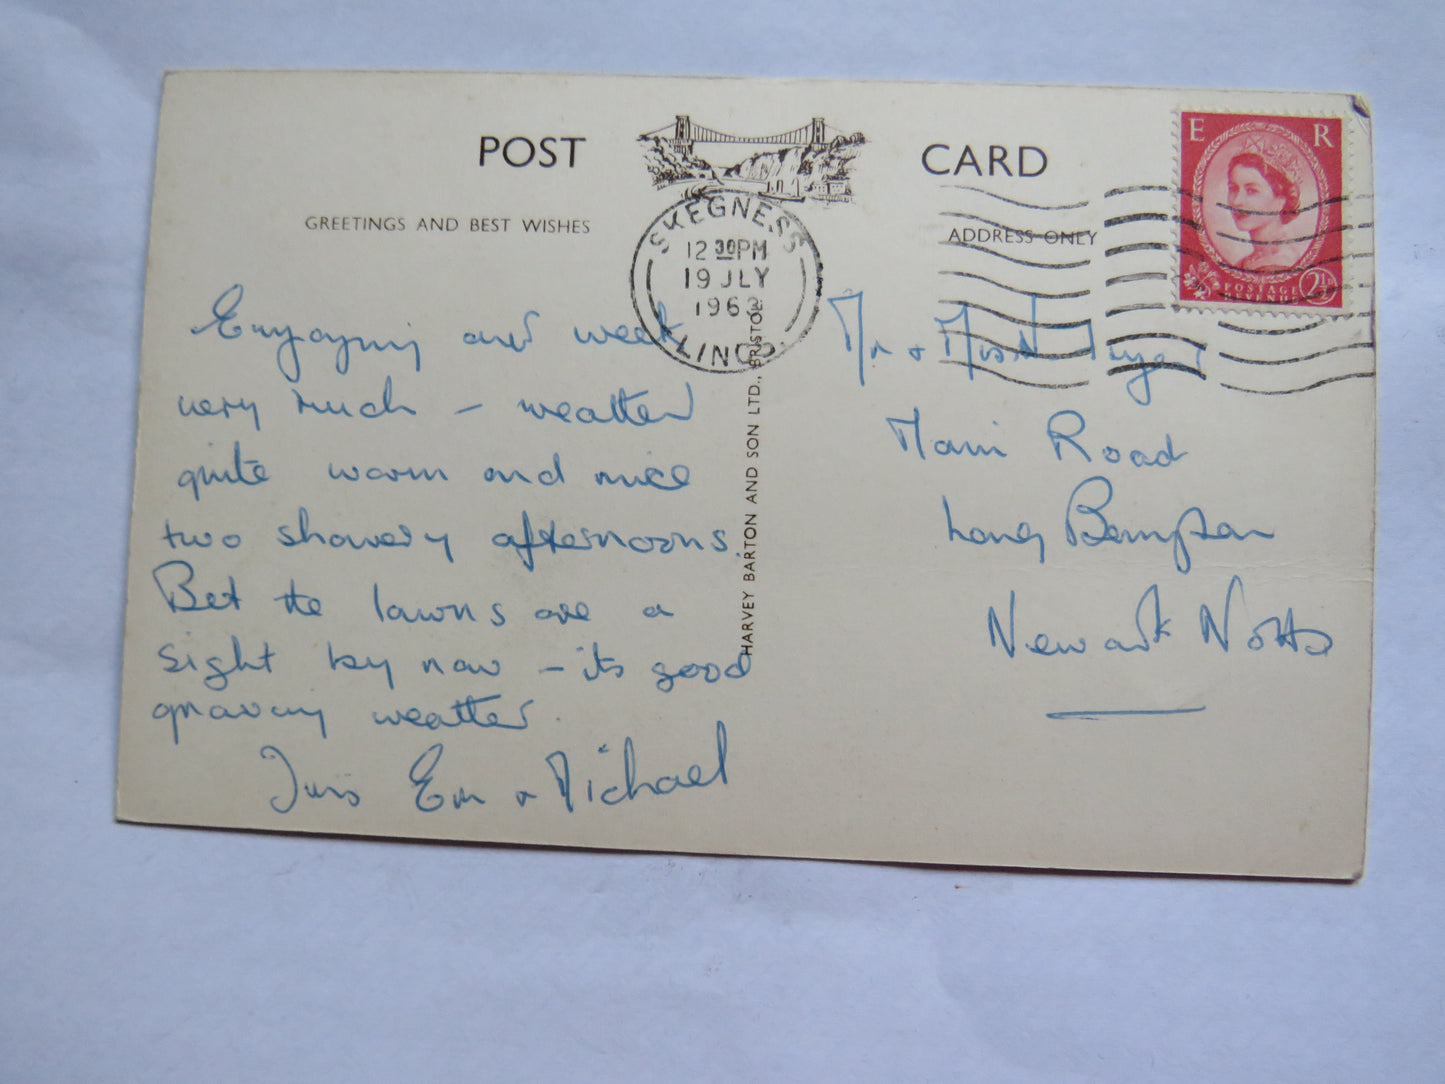 POST CARD
GREETINGS AND BEST WISHES
ADDRESS ONLY
E R
POSTAGE
REVENUE
2½
SKEGNESS
12 30PM
19 JLY
1963
LINCS.
HARVEY BARTON AND SON LTD., BRISTOL
Enjoying our week
very much – weather
quite warm and nice
two showery afternoons.
Bet the lawns are a
sight by now – its good
growing weather.
Em & Michael
Mr & Mrs
Main Road
Long Bennington
Newark Notts